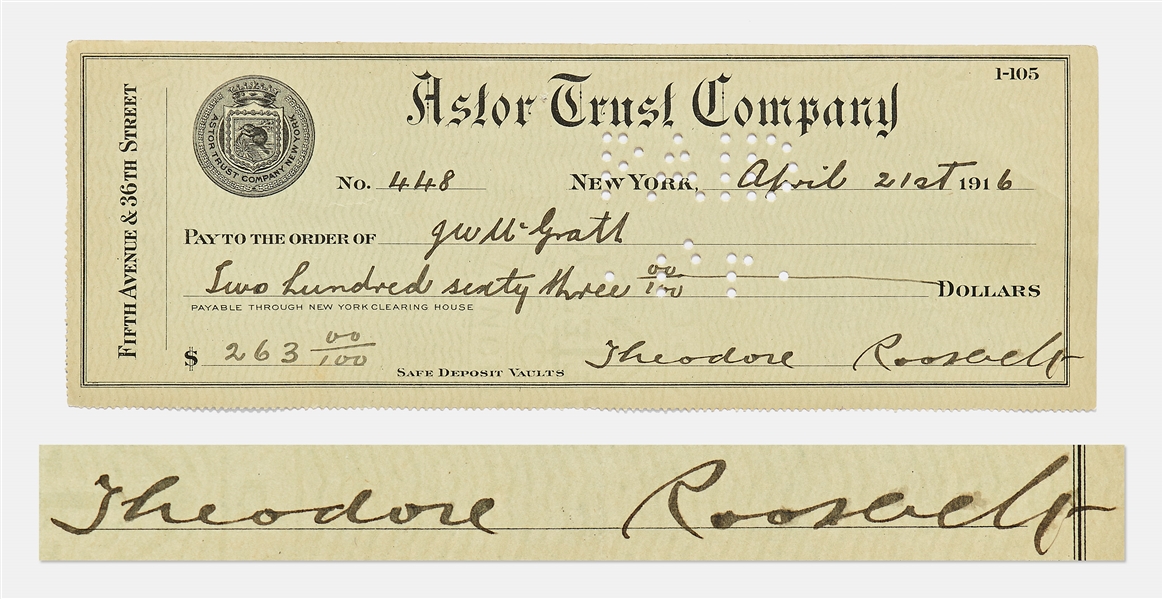 1-105
Astor Trust Company
FIFTH AVENUE & 36TH STREET
ASTOR TRUST COMPANY NEW YORK
PAID
No. 448 NEW YORK, April 21st 1916
PAY TO THE ORDER OF J W McGrath
Two hundred sixty three 00/100 DOLLARS
PAYABLE THROUGH NEW YORK CLEARING HOUSE
$ 263 00/100
SAFE DEPOSIT VAULTS
Theodore Roosevelt
Theodore Roosevelt